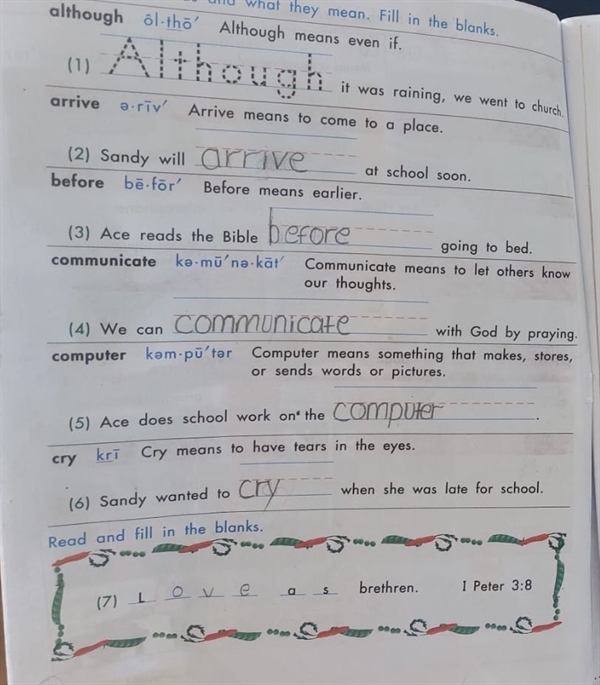 and what they mean. Fill in the blanks.
although ôl·thō′ Although means even if.
(1) Although it was raining, we went to church.
arrive ə·rīv′ Arrive means to come to a place.
(2) Sandy will arrive at school soon.
before bē·fōr′ Before means earlier.
(3) Ace reads the Bible before going to bed.
communicate kə·mū′nə·kāt′ Communicate means to let others know
our thoughts.
(4) We can communicate with God by praying.
computer kəm·pū′tər Computer means something that makes, stores,
or sends words or pictures.
(5) Ace does school work on the computer.
cry krī Cry means to have tears in the eyes.
(6) Sandy wanted to cry when she was late for school.
Read and fill in the blanks.
(7) L o v e a s brethren. I Peter 3:8